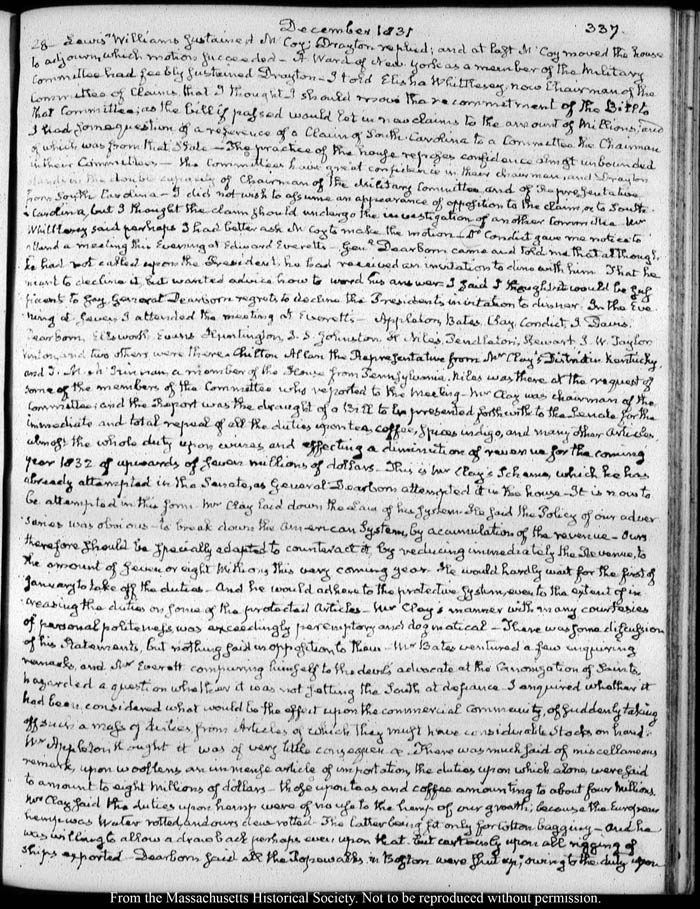 December 1831
337.
28– Lewis Williams sustained McCoy; Drayton replied; and at last McCoy moved the house
to adjourn, which motion succeeded– A Ward of New York as a member of the Military
Committee had feebly sustained Drayton– I told Elisha Whittlesey, now Chairman of the
Committee of Claims, that I thought I should move the recommitment of the Bill to
that Committee; as the bill if passed would let in new claims to the amount of Millions; and
I had some question of a reference of a Claim of South Carolina to a Committee the Chairman
of which was from that State– The practice of the house reposes confidence almost unbounded
in their Committees– the Committees have great confidence in their chairman, and Drayton
stands in the double capacity of Chairman of the Military Committee, and of Representative
from South Carolina– I did not wish to assume an appearance of opposition to the claim, or to South-
Carolina, but I thought the claim should undergo the investigation of another Committee– Mr
Whittlesey said perhaps I had better ask McCoy to make the motion– Dr Condict gave me notice to
attend a meeting this Evening at Edward Everett's– Genl Dearborn came and told me that although
he had not called upon the President, he had received an invitation to dine with him. That he
meant to decline it, but wanted advice how to word his answer– I said I thought it would be suf-
ficient to say General Dearborn regrets to decline the President's invitation to dinner. In the Eve-
ning at seven, I attended the meeting at Everett's– Appleton, Bates, Clay, Condict, J Davis,
Dearborn, Ellsworth, Evans, Huntington, J. S. Johnston, H Niles, Pendleton, Stewart, J. W. Taylor
Vinton, and two others were there Chilton Allan the Representative from Mr Clay's District in Kentucky,
and T. M. McKennan a member of the House from Pennsylvania. Niles was there at the request of
some of the members of the Committee who reported to the Meeting– Mr Clay was chairman of the
Committee; and the Report was the draught of a Bill to be presented forthwith to the Senate for the
immediate and total repeal of all the duties upon tea, coffee, spices indigo, and many other Articles
almost the whole duty upon wines, and effecting a diminution of revenue for the coming
year 1832 of upwards of seven millions of dollars– This is Mr Clay's Scheme, which he has
already attempted in the Senate, as General Dearborn attempted it in the house– It is now to
be attempted in this form. Mr Clay laid down the law of his system– He said the Policy of our adver-
saries was obvious– to break down the American System, by accumulation of the revenue– Ours
therefore should be specially adapted to counteract it, by reducing immediately the Revenue, to
the amount of seven or eight Millions this very coming year– He would hardly wait for the first of
January to take off the duties– And he would adhere to the protective System, even to the extent of in-
creasing the duties on some of the protected Articles– Mr Clay's manner with many courtesies
of personal politeness, was exceedingly peremptory and dogmatical– There was some discussion
of his statements, but nothing said in opposition to them– Mr Bates ventured a few enquiring
remarks, and Mr Everett comparing himself to the devil's advocate at the Canonization of Saints
hazarded a question whether it was not setting the South at defiance– I enquired whether it
had been considered what would be the effect upon the commercial Community, of suddenly taking
off such a mass of duties, from Articles of which they must have considerable Stocks on hand:
Mr Appleton thought it was of very little consequence. There was much said of miscellaneous
remark, upon woollens an immense article of importation, the duties upon which alone were said
to amount to eight Millions of dollars– those upon teas and coffee amounting to about four Millions.
Mr Clay said the duties upon hemp were of no use to the hemp of our growth; because the European
hemp was Water rotted, and ours dew rotted– The latter being fit only for Cotton bagging– And he
was willing to allow a drawback perhaps even upon that, but certainly upon all rigging of
ships exported– Dearborn said all the Ropewalks in Boston were shut up; owing to the duty upon
From the Massachusetts Historical Society. Not to be reproduced without permission.